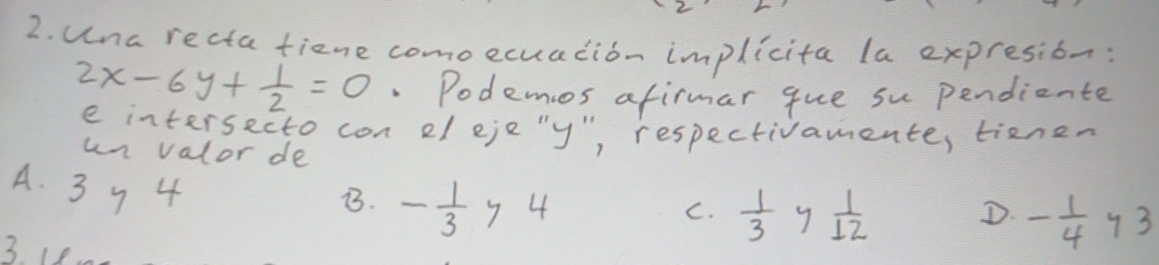 2. Una recta tiene como ecuación implícita la expresión:
2x - 6y + 1/2 = 0. Podemos afirmar que su pendiente
e intersecto con el eje "y", respectivamente, tienen
un valor de
A. 3 y 4 B. - 1/3 y 4 C. 1/3 y 1/12 D. - 1/4 y 3
3. Una